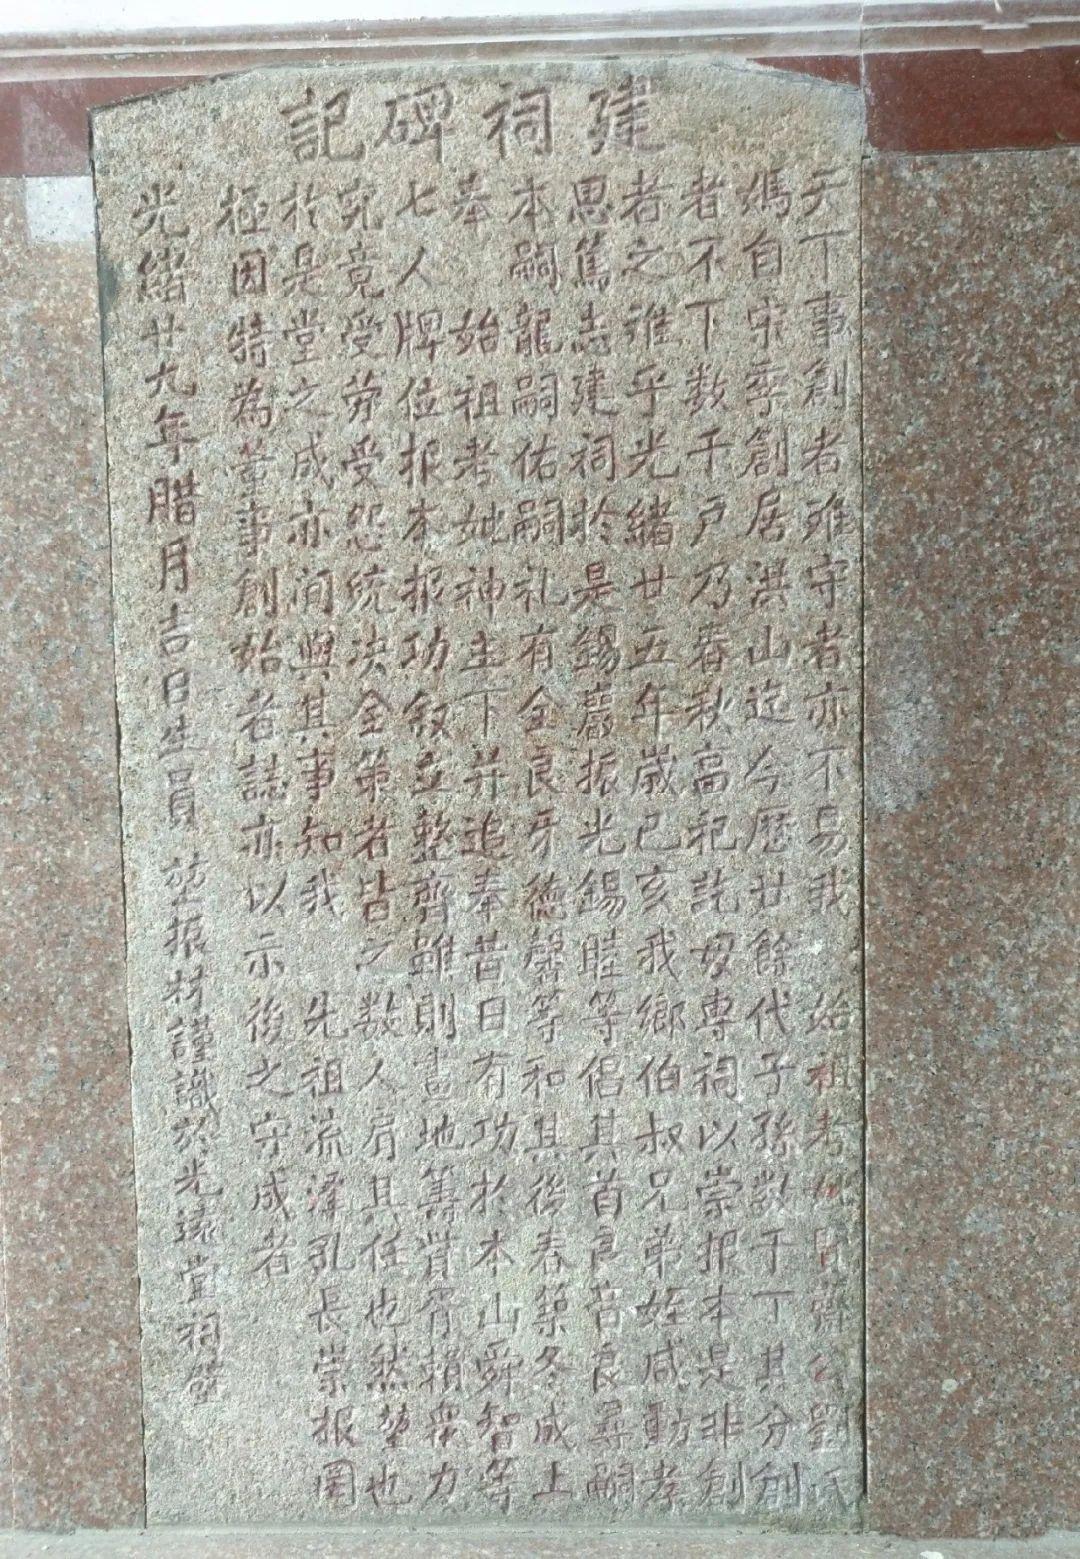 建祠碑記
天下事創者难守者亦不易我 始祖考妣 齋公劉氏
媽自宋季創居洪山迄今歷廿餘代子孫数千丁其分創
者不下数千户乃春秋高祀訖毋專祠以崇报本是非創
者之难乎光緒廿五年歲己亥我鄉伯叔兄弟姪咸動孝
思篤志建祠於是錫慶振光錫睦等倡其首良音良尋嗣
本嗣龍嗣佑嗣礼有全良牙德馨等和其後春築冬成上
奉 始祖考妣神主下并追奉昔日有功於本山舜智等
七人牌位报本报功敘立整齊雖則畫地筹 胥賴衆力
究竟受劳受怨統决全策者皆之数人肩其任也然堃也
於是堂之成亦间與其事知我 先祖流澤孔長崇报罔
極因特為董事創始者誌亦以示後之守成者
光緒廿九年腊月吉日生員 堃振材謹識於光遠堂祠壁